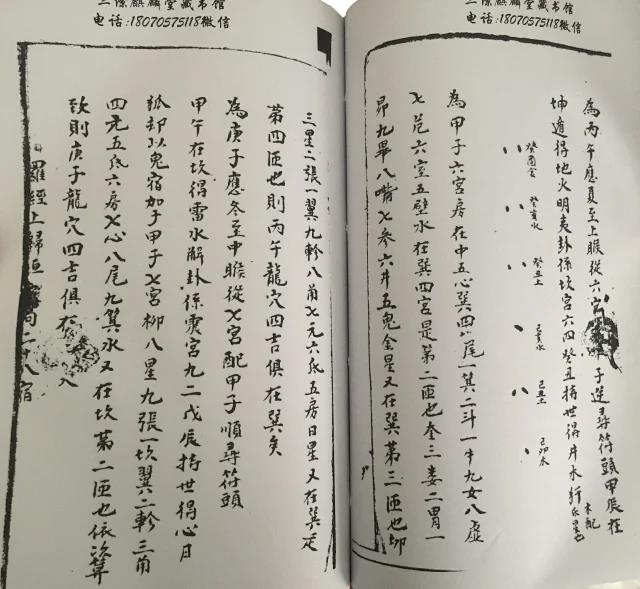 電话:18070575118微信
電话:18070575118微信
為丙午應夏至上𠋫從六宮子逆尋符頭甲辰在
坤遁得地火明夷卦係坎宮六四癸丑持世得井水
癸酉金
癸亥水
癸丑土
己亥水
己丑土
己卯木
為甲子六宮房在中五心巽四尾一箕二斗一牛九女八虚
七危六室五壁水在巽四宮是第二匝也奎三娄二胃一
昴九畢八嘴七参六井五鬼金星又在巽第三匝也柳
三星二張一翼九軫八角七亢六氐五房日星又在巽是
第四匝也則丙午龍穴四吉俱在巽矣
為庚子應冬至中𠋫從七宮配甲子順尋符頭
甲午在坎得雷水解卦係震宮九二戊辰持世得心日
狐却以鬼宿加于甲子七宮柳八星九張一坎翼二軫三角
四亢五氐六房七心八尾九箕水又在坎第二匝也依次算
致則庚子龍穴四吉俱在
羅經上歸垣二十八宿